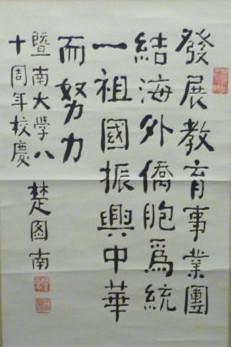 發展教育事業團
結海外僑胞為統
一祖國振興中華
而努力
暨南大學八
十周年校慶
楚圖南